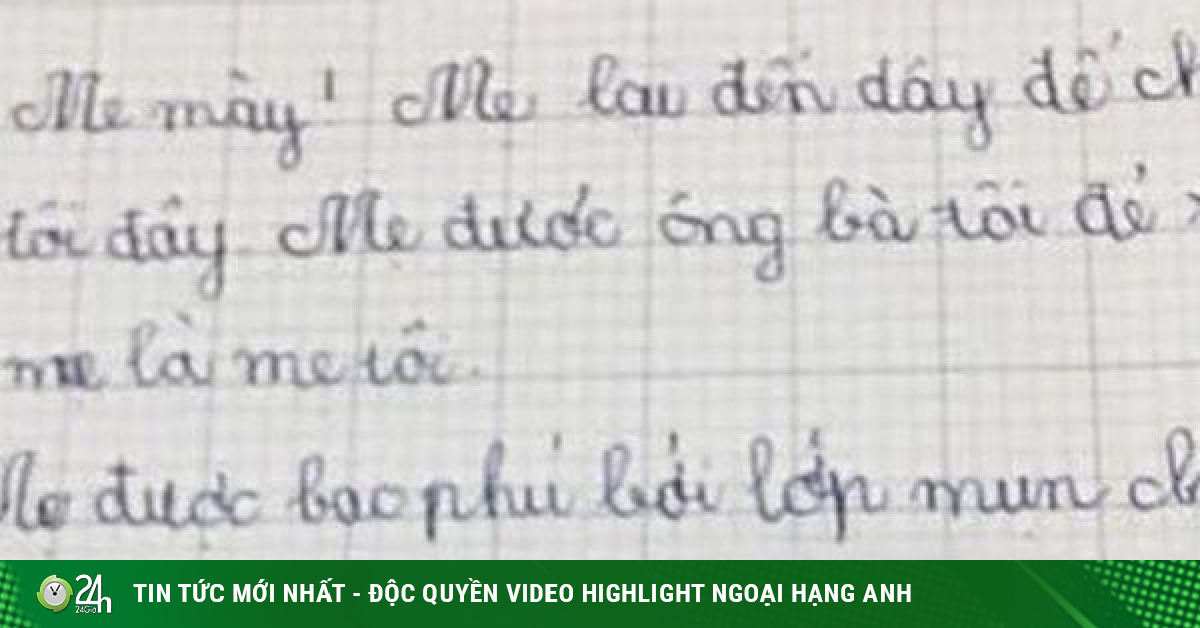 Mẹ mày! Mẹ lại đến đây để ch
tôi đây Mẹ được ông bà tôi đẻ
mẹ là mẹ tôi.
Mẹ được bao phủ bởi lớp mụn ch
24h
24Giờ
TIN TỨC MỚI NHẤT - ĐỘC QUYỀN VIDEO HIGHLIGHT NGOẠI HẠNG ANH